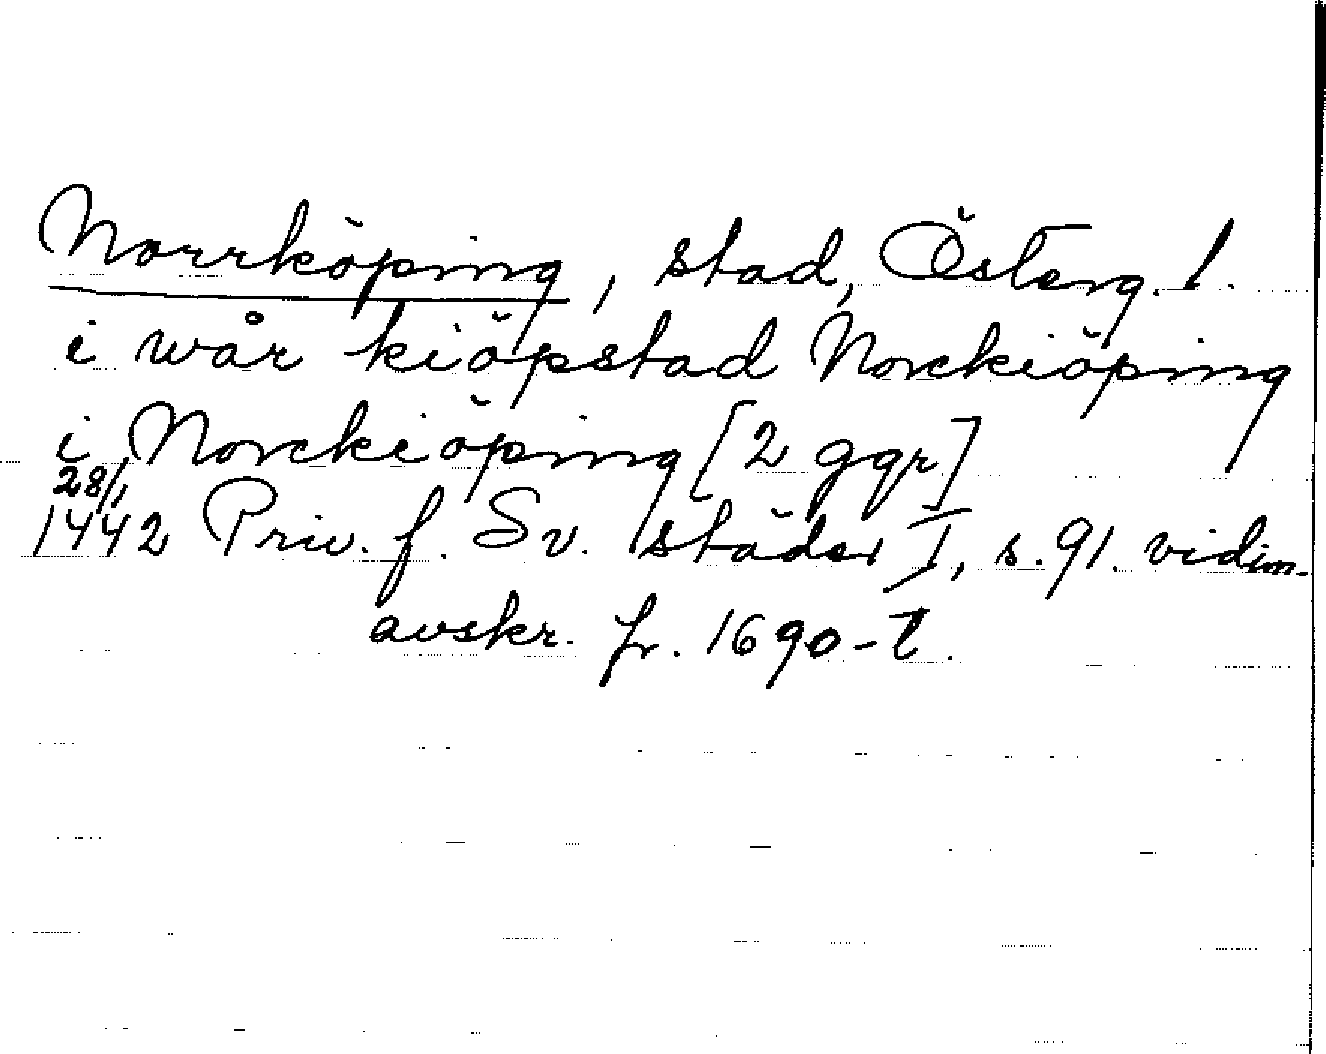 Norrköping, stad, Österg. l.
i wår kiöpstad Norckiöping
i Norckiöping [2 ggr]
28/1
1442 Priv. f. Sv. städer I, s. 91. vidim.
avskr. fr. 1690-t.